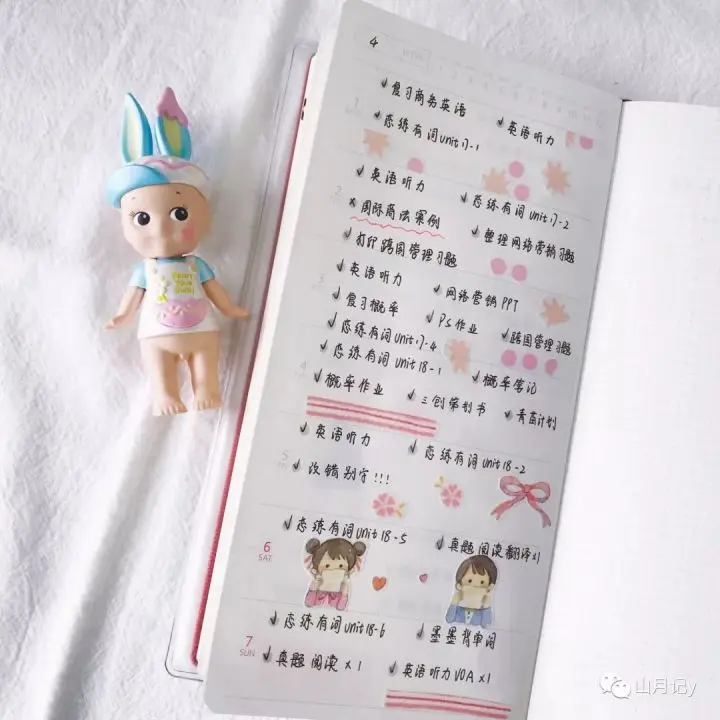 4
1
✓复习商务英语
✓英语听力
✓恋练有词unit17-1
2
✓英语听力
✓恋练有词unit17-2
×国际商法案例
✓整理网络营销习题
✓打印跨国管理习题
3
✓英语听力
✓网络营销PPT
✓复习概率
✓PS作业
✓跨国管理习题
✓恋练有词unit17-4
4
✓恋练有词unit18-1
✓概率笔记
✓概率作业
✓三创策划书
✓青苗计划
5
✓英语听力
✓恋练有词unit18-2
✓改错别字!!!
6
SAT
✓恋练有词unit18-5
✓真题阅读翻译×1
7
SUN
✓恋练有词unit18-6
✓墨墨背单词
✓真题阅读×1
✓英语听力VOA×1
山月记y